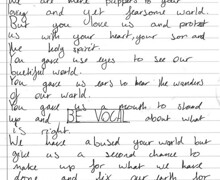 We are mere puppets to your
and yet fearsome world.
But you love us and protect
us with your heart, your son and
the holy spirit.
You gave use eyes to see our
beutiful world.
You gave us ears to hear the wonders
of our world.
You gave us a mouth to stand
up and BE VOCAL about what
is right.
We have abused your world but
give us a second chance to
make up for what we have
done and fix our earth for